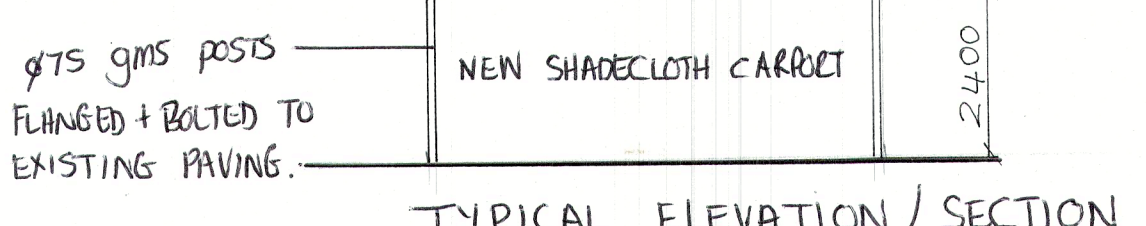 ø75 gms posts
FLANGED + BOLTED TO
EXISTING PAVING.
NEW SHADECLOTH CARPORT
2400
TYPICAL ELEVATION / SECTION